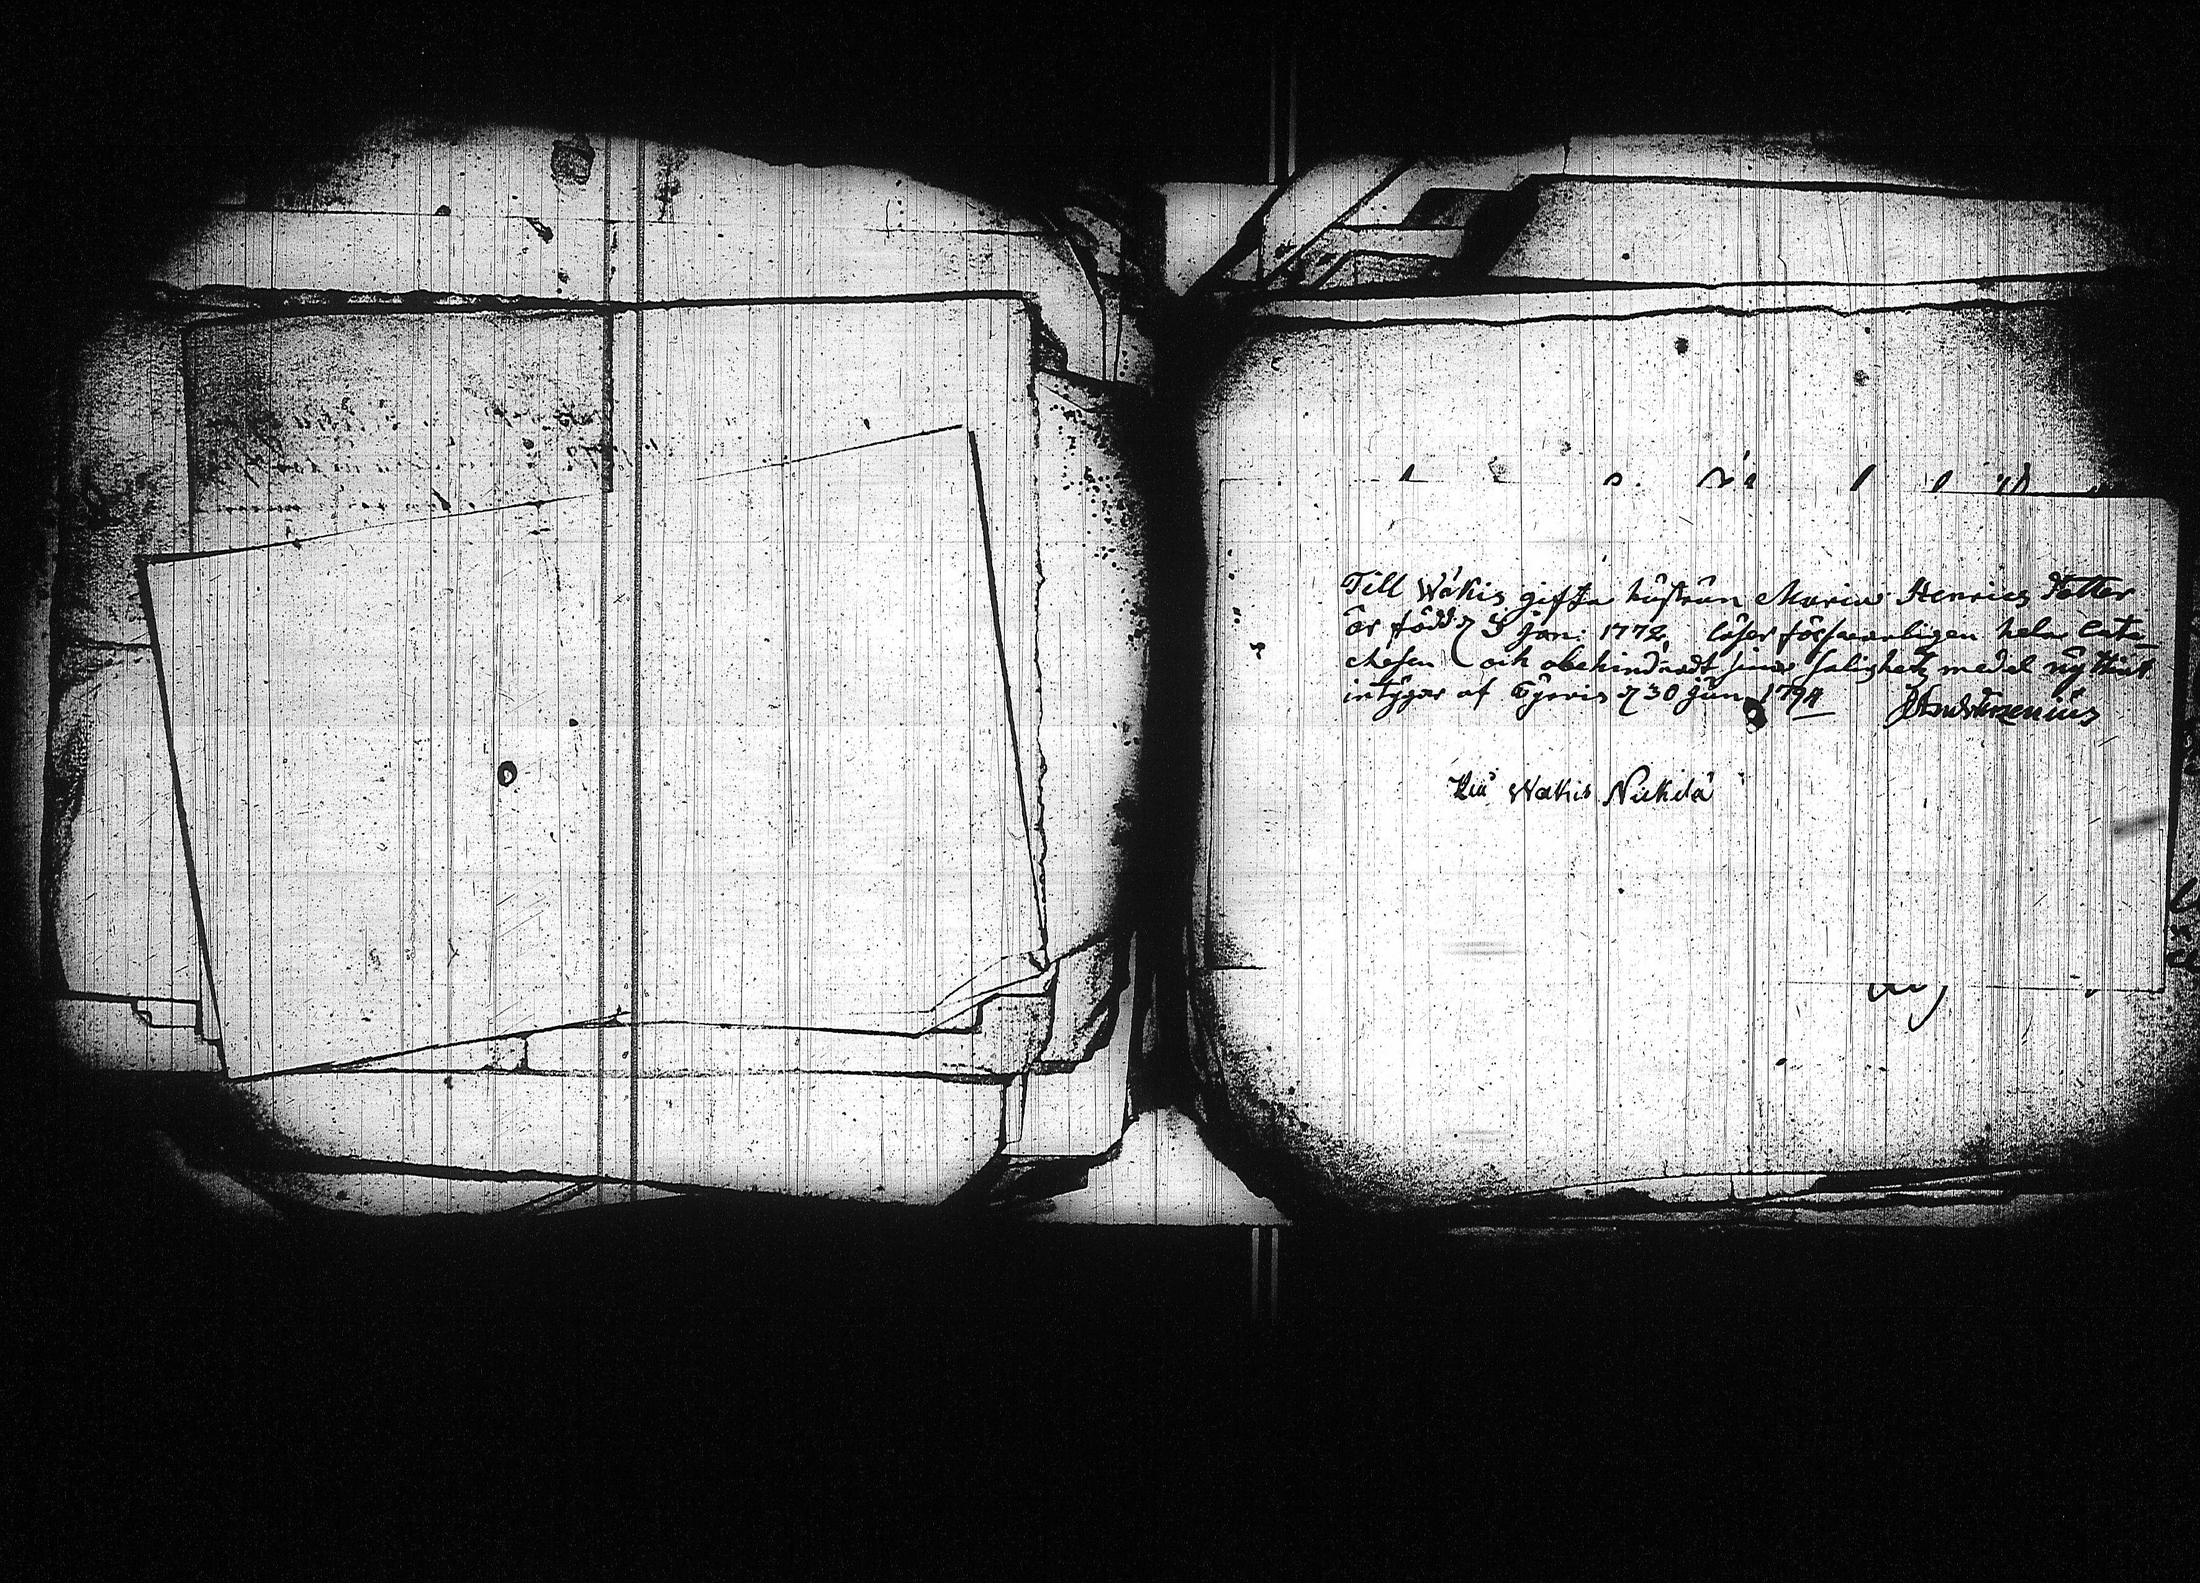 Till Wakis gifta hustrun Maria Henrics dotter
är född d 3 Jan: 1772, läser försvarligen hela Cate-
chesen och obehindradt sina salighetz medel nyttiat
intygar af Tyrvis d 30 Jun 1794
Wakis Nickilä